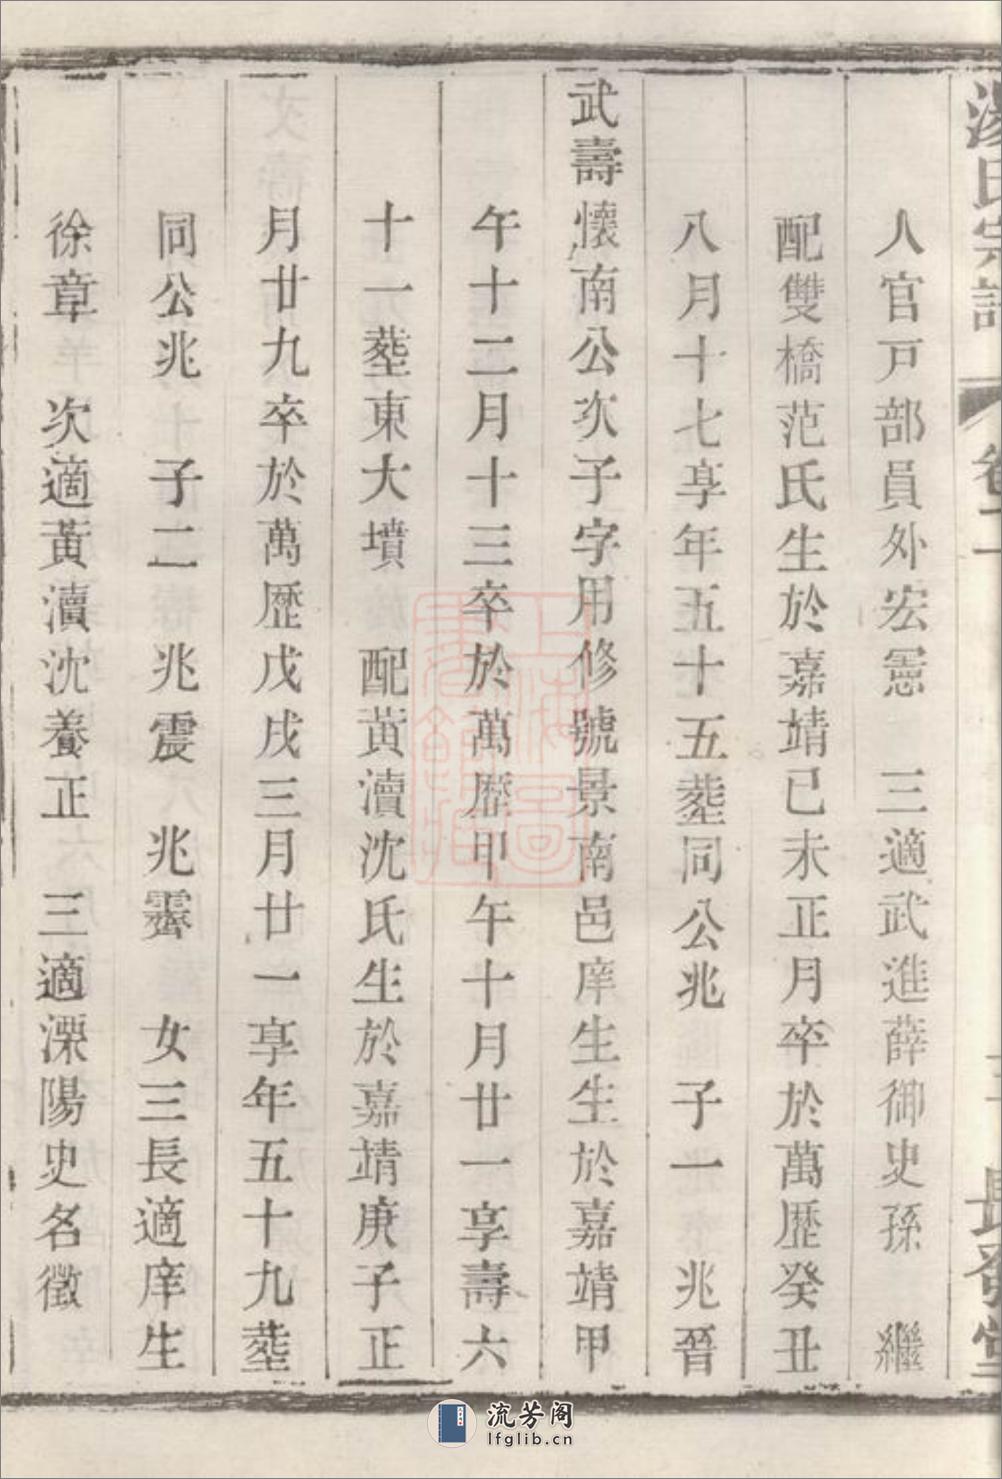 湯氏宗譜 卷二 長發堂
人官戸部員外宏憲 三適武進薛御史孫 繼
配雙橋范氏生於嘉靖已未正月卒於萬歴癸丑
八月十七享年五十五塟同公兆 子一 兆晉
武壽懷南公次子字用修號景南邑庠生生於嘉靖甲
午十二月十三卒於萬歴甲午十月廿一享壽六
十一塟東大墳 配黃瀆沈氏生於嘉靖庚子正
月廿九卒於萬歴戊戌三月廿一享年五十九塟
同公兆 子二 兆震 兆霽 女三長適庠生
徐章 次適黃瀆沈養正 三適溧陽史名徵
上海圖書館藏
流芳阁
lfglib.cn.com